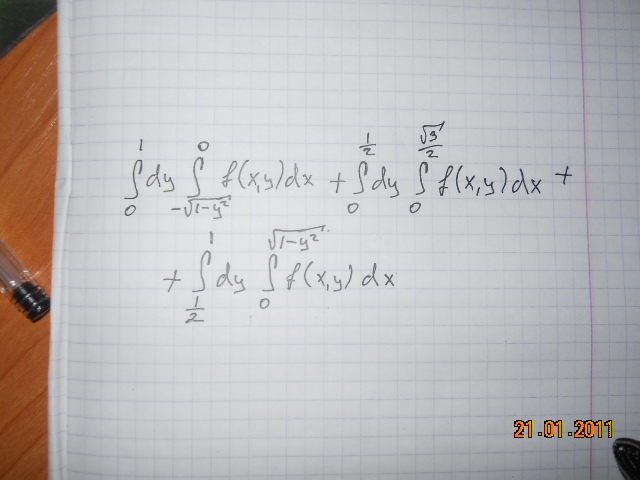 ∫₀¹ dy ∫_{-√(1-y²)}^0 f(x,y)dx + ∫₀^{1/2} dy ∫₀^{√3/2} f(x,y)dx +
+ ∫_{1/2}^1 dy ∫₀^{√(1-y²)} f(x,y) dx
21.01.2011